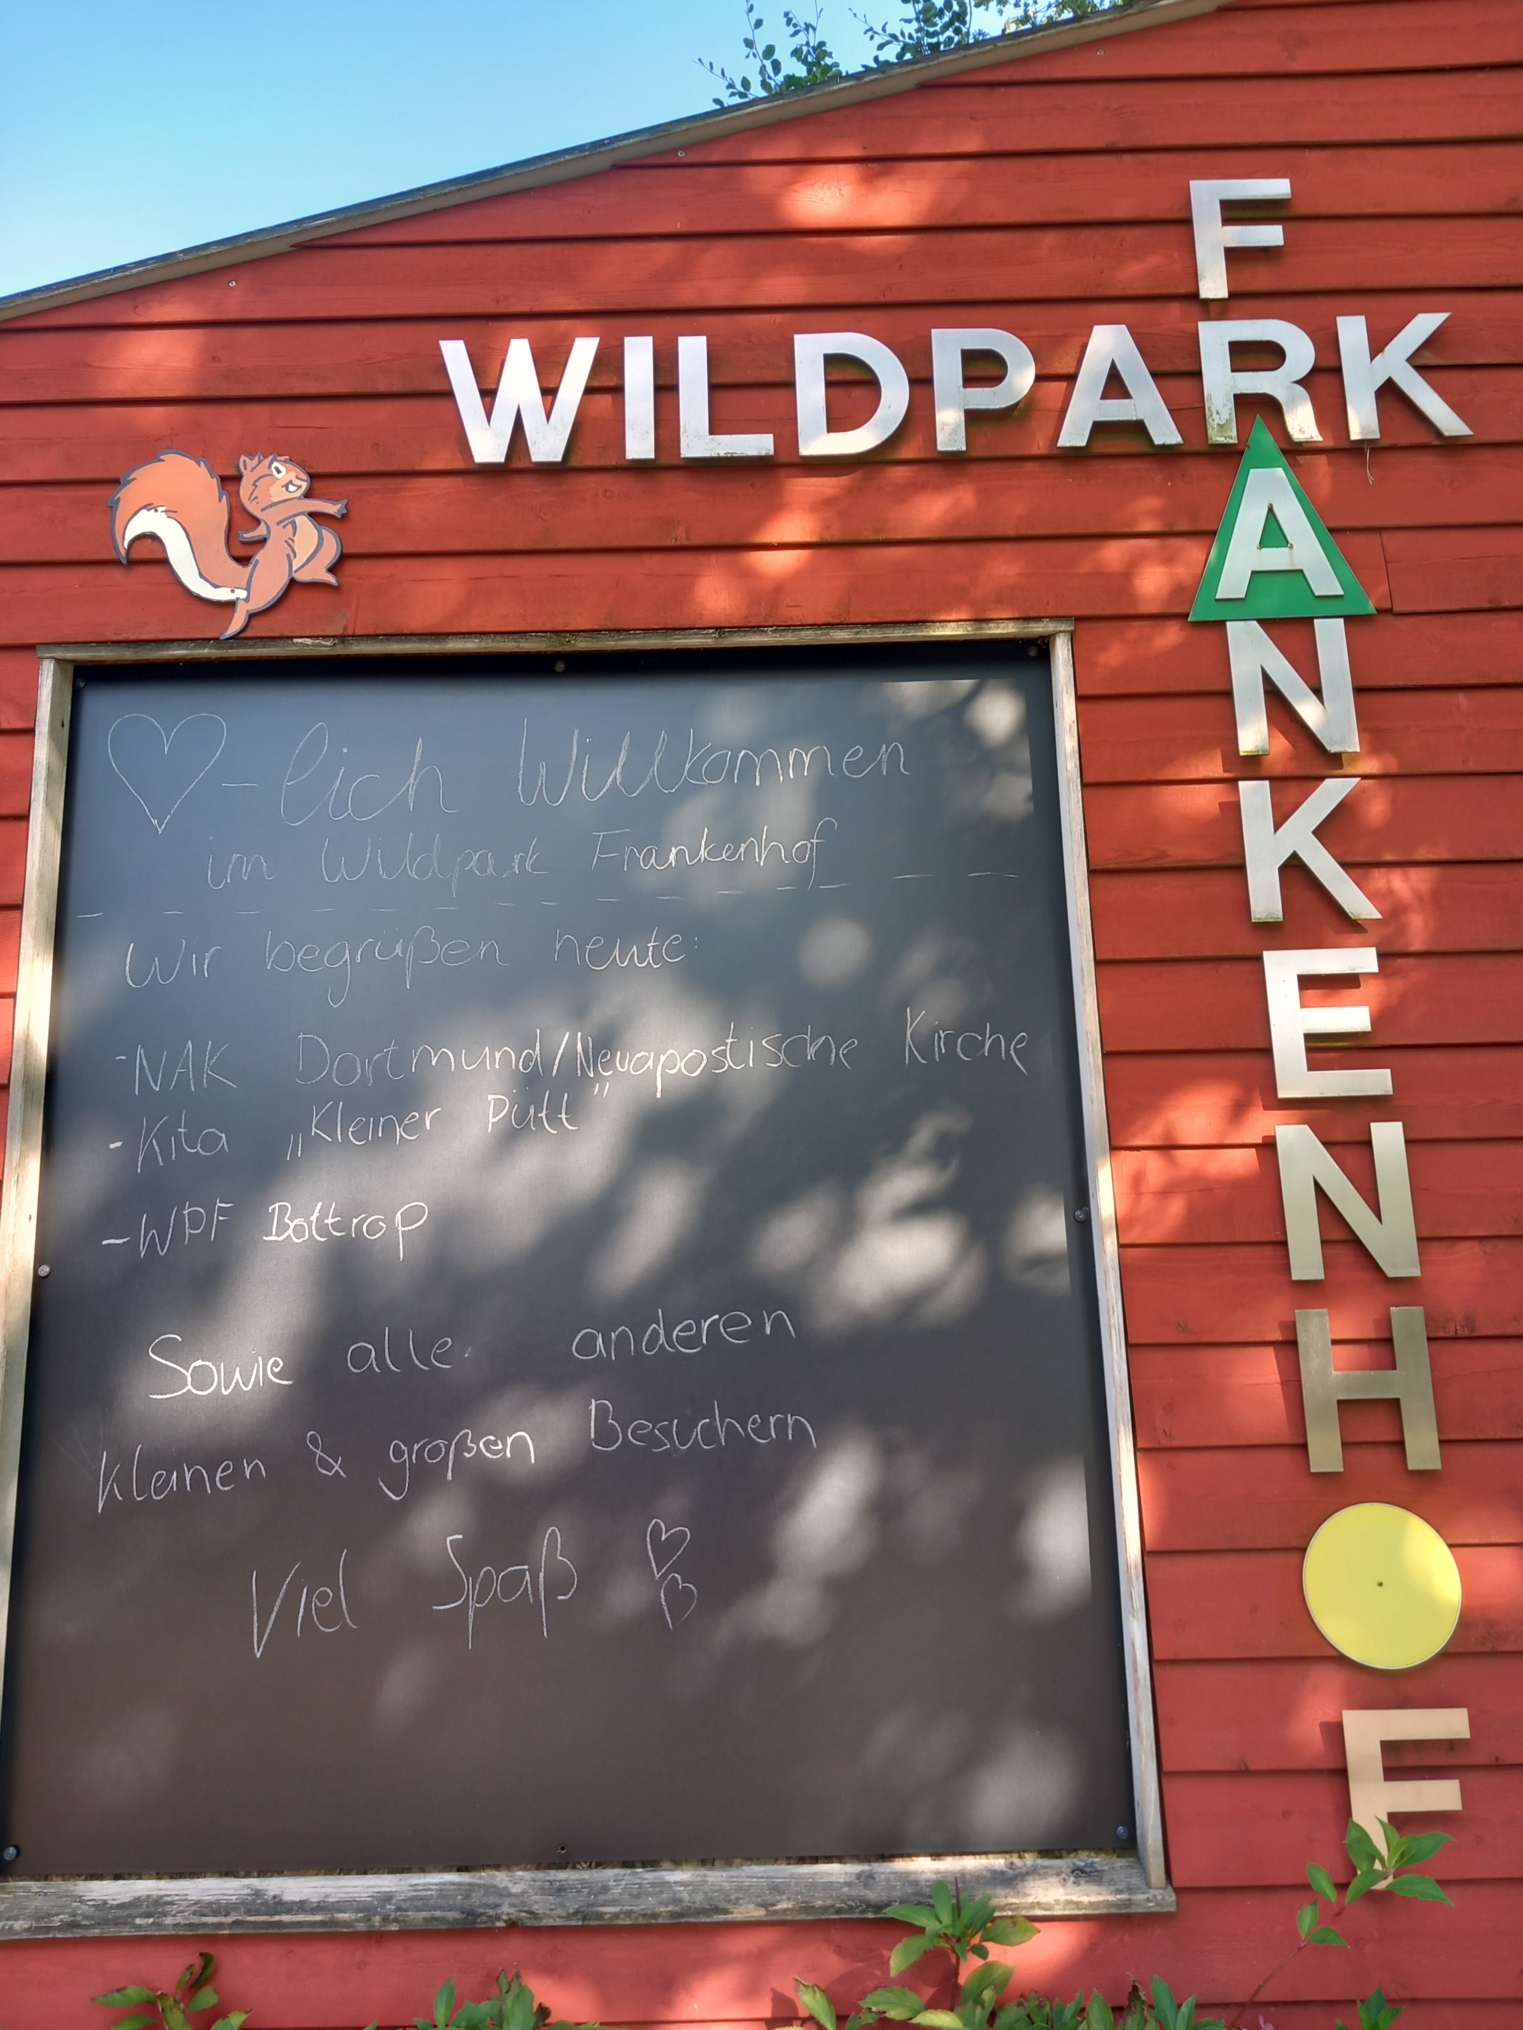 WILDPARK
FRANKENHOF
♡-lich Willkommen
im Wildpark Frankenhof
Wir begrüßen heute:
-NAK Dortmund/Neuapostische Kirche
-Kita „Kleiner Pütt"
-WPF Bottrop
Sowie alle anderen
kleinen & großen Besuchern
Viel Spaß ♡
♡